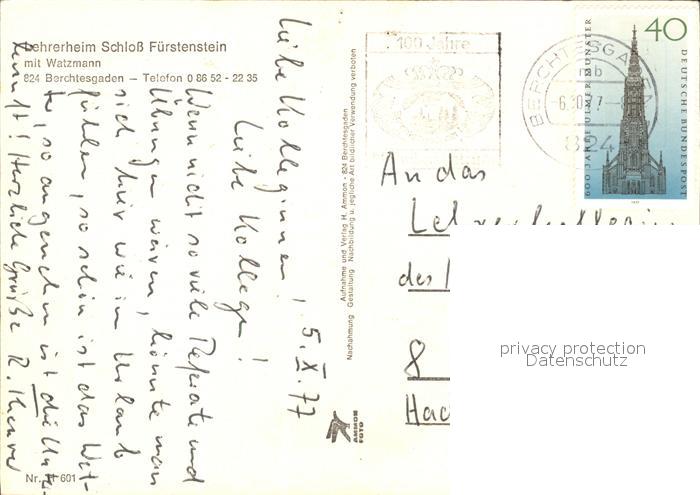 Lehrerheim Schloß Fürstenstein
mit Watzmann
824 Berchtesgaden – Telefon 0 86 52 - 22 35
Liebe Kolleginnen!
Liebe Kollegen!
5.X.77
Wenn nicht so viele Referate und
Übungen wären, könnte man
sich hier wie im Urlaub
fühlen, so schön ist das Wet-
ter, so angenehm ist die Unter-
kunft! Herzliche Grüße R.
Nr. H 601
Aufnahme und Verlag H. Ammon · 824 Berchtesgaden
Gestaltung Nachbildung u. jegliche Art bildlicher Verwendung verboten
Nachahmung
AMMON
FOTO
100 Jahre
BERCHTESGADEN
mb
824
600 JAHRE ULMER MÜNSTER
40
DEUTSCHE BUNDESPOST
1977
An das
des
8
privacy protection
Datenschutz